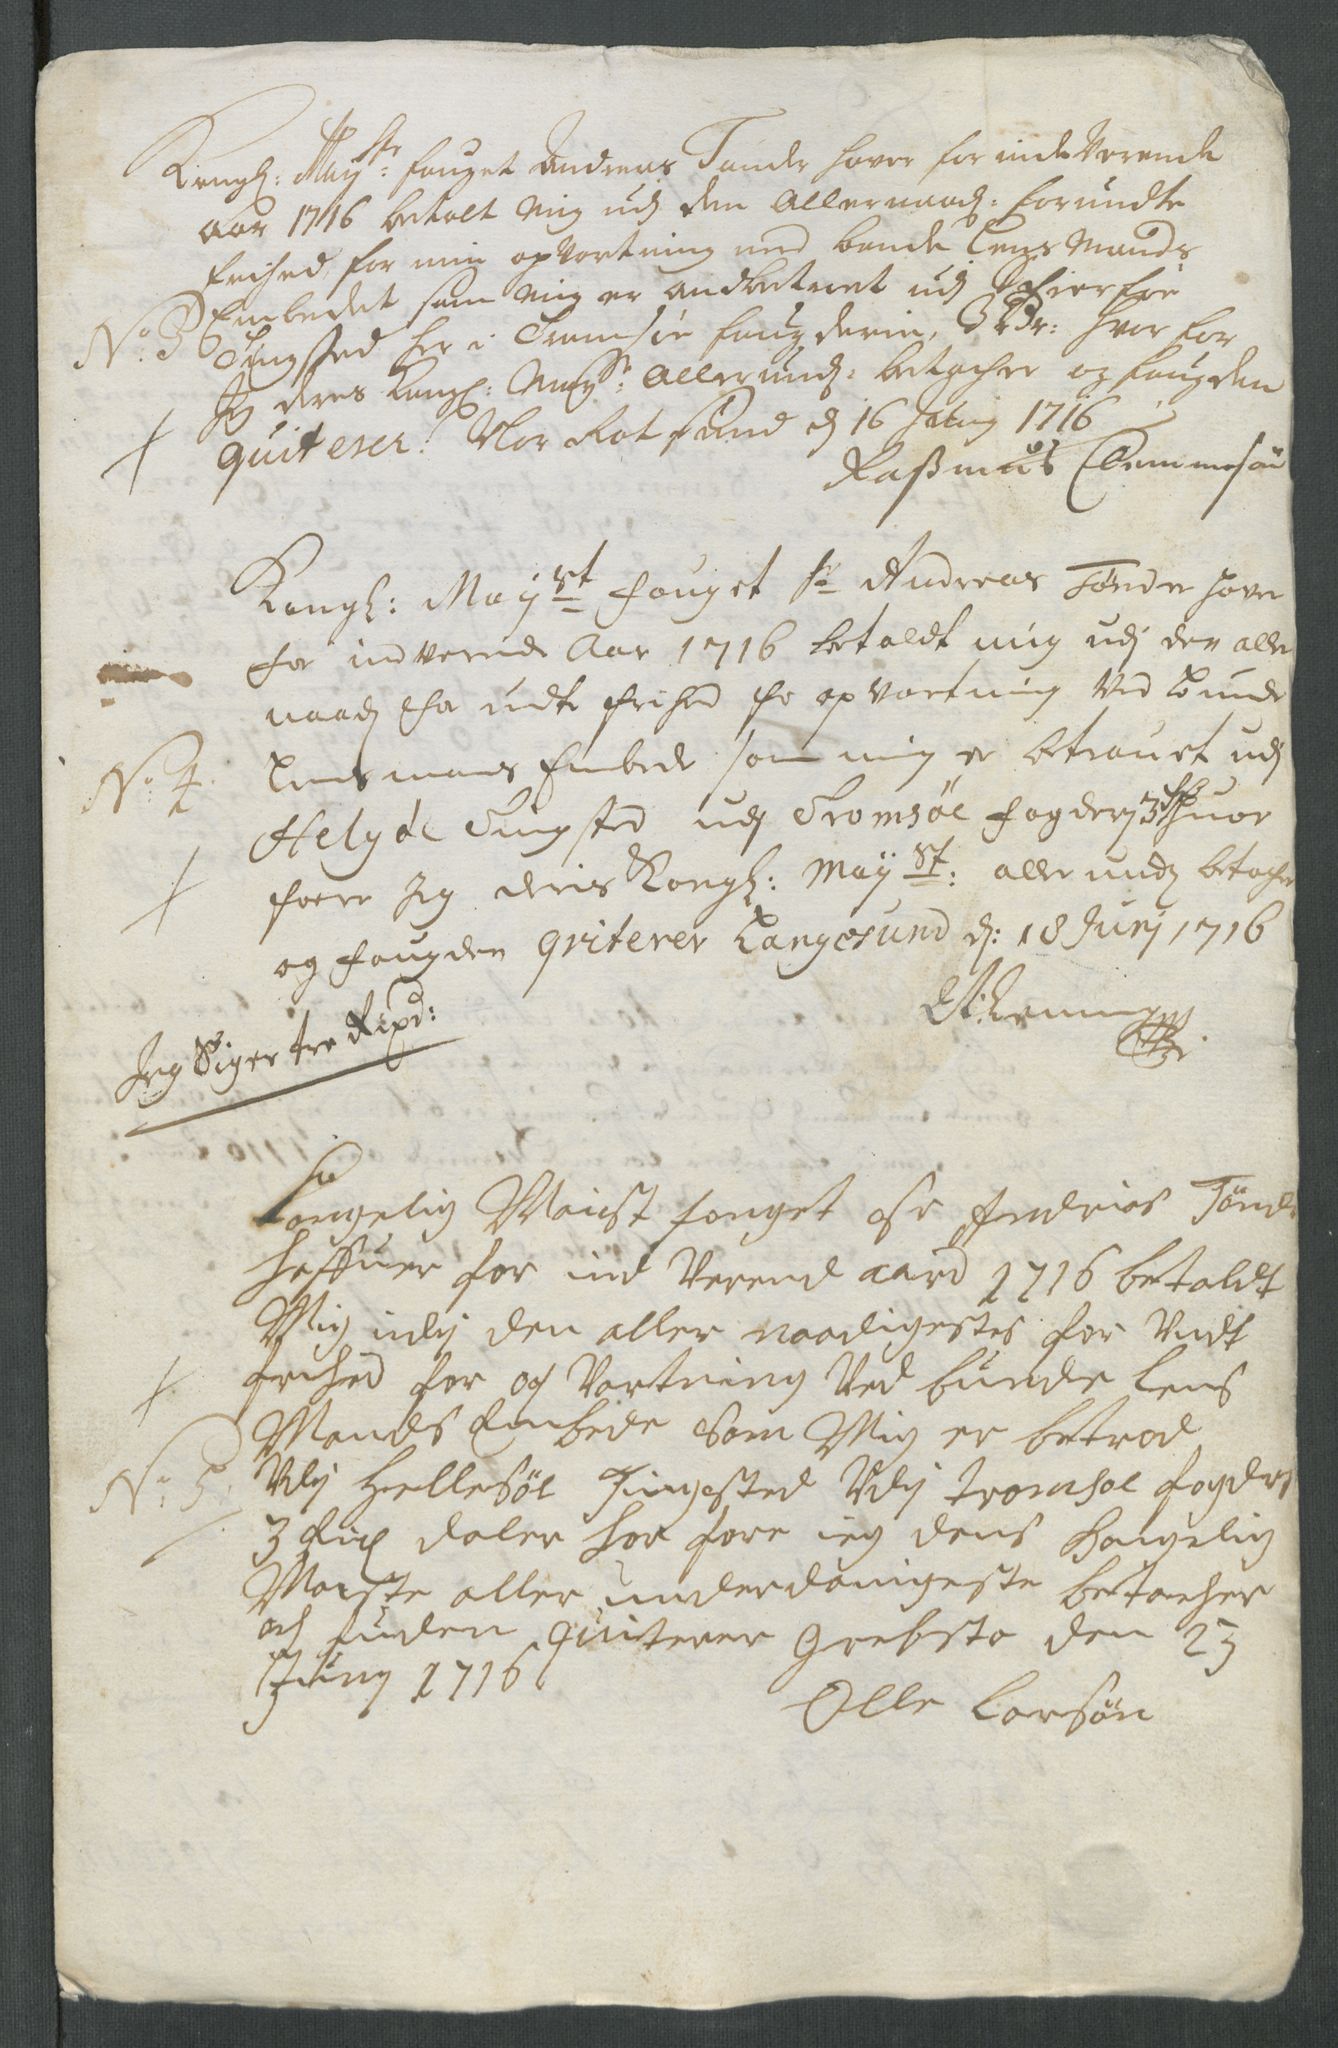 Kongl: May:st fouget Andreas Tønder hover for inde Verende
aar 1716 betalt mig udj den Allernaad: forundte
frihed for min opvartning ved bonde Lens Mands
Embedet som mig er andbetroet udj
No: 3
Tingsted her i Tromsøe fougderie, 3 Rdr: hvor for
Jeg deres Kongl: May:st Allerund: betacher og fougden
qviterer. Mor Rotsund dj 16 Juny 1716
Rasmus Clemmesøn
Kongl: Maij:st fouget Sr Andreas Tønder hover
for indverende Aar 1716 betaldt mig udj den aller
naadj for undte frihed for opvartning Ved bunde
No: 4.
Lens mans Embede som mig er betrouet udj
Helgøe Tingsted udj Tromsøe fogderj 3 Rdr huor
foere Jeg deris Kongl: Maij:st: allerundj betacher
og fougden qviterer Langesund dj: 18 Junj 1716
Jeg Siger tre Rixd:
Longelig Maiest fouget Sr Andrias Tønder
haffuer for ind Verend aard 1716 betaldt
Mig udij den aller naadigestes for Undt
frihed for og Vartning Ved bunde Lens
Mands Embede som Mig er betrod
No: 5.
Udij Hellesøe Tingested Udij tromsøe fogdri
3 Rix daler hor fore ieg dens kongelig
Maiste aller underdanigeste betacher
och fuden quiterer Grebsta den 23
Juny 1716
Olle Larsøn